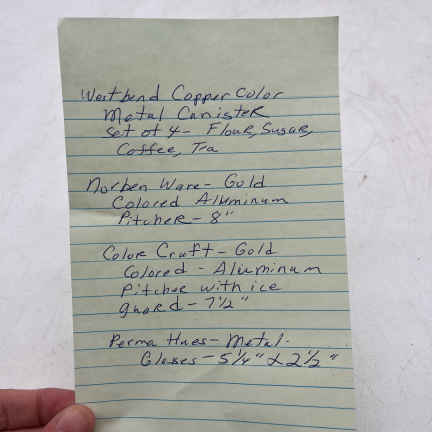 Westbend Copper Color
Metal Canister
Set of 4- Flour, Sugar,
Coffee, Tea
Norben Ware- Gold
Colored Aluminum
Pitcher- 8"
Color Craft- Gold
Colored - Aluminum
Pitcher with ice
guard- 7 1/2"
Perma Hues- Metal-
Glasses- 5 1/4" x 2 1/2"